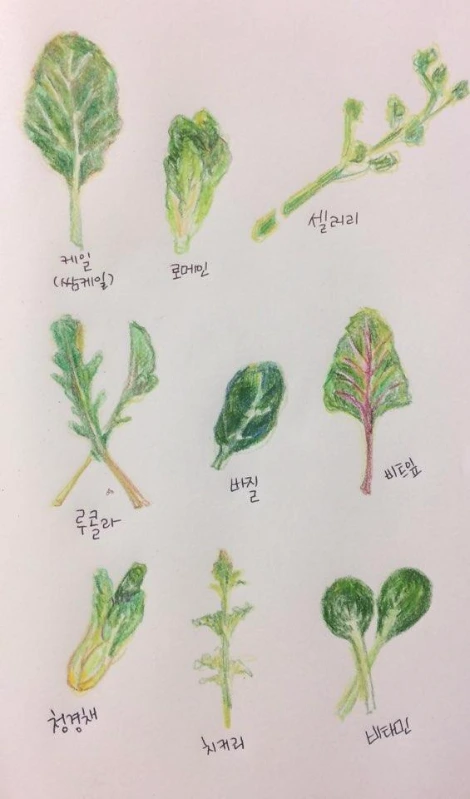 케일
(쌈케일)
로메인
셀러리
루콜라
바질
비트잎
청경채
치커리
비타민